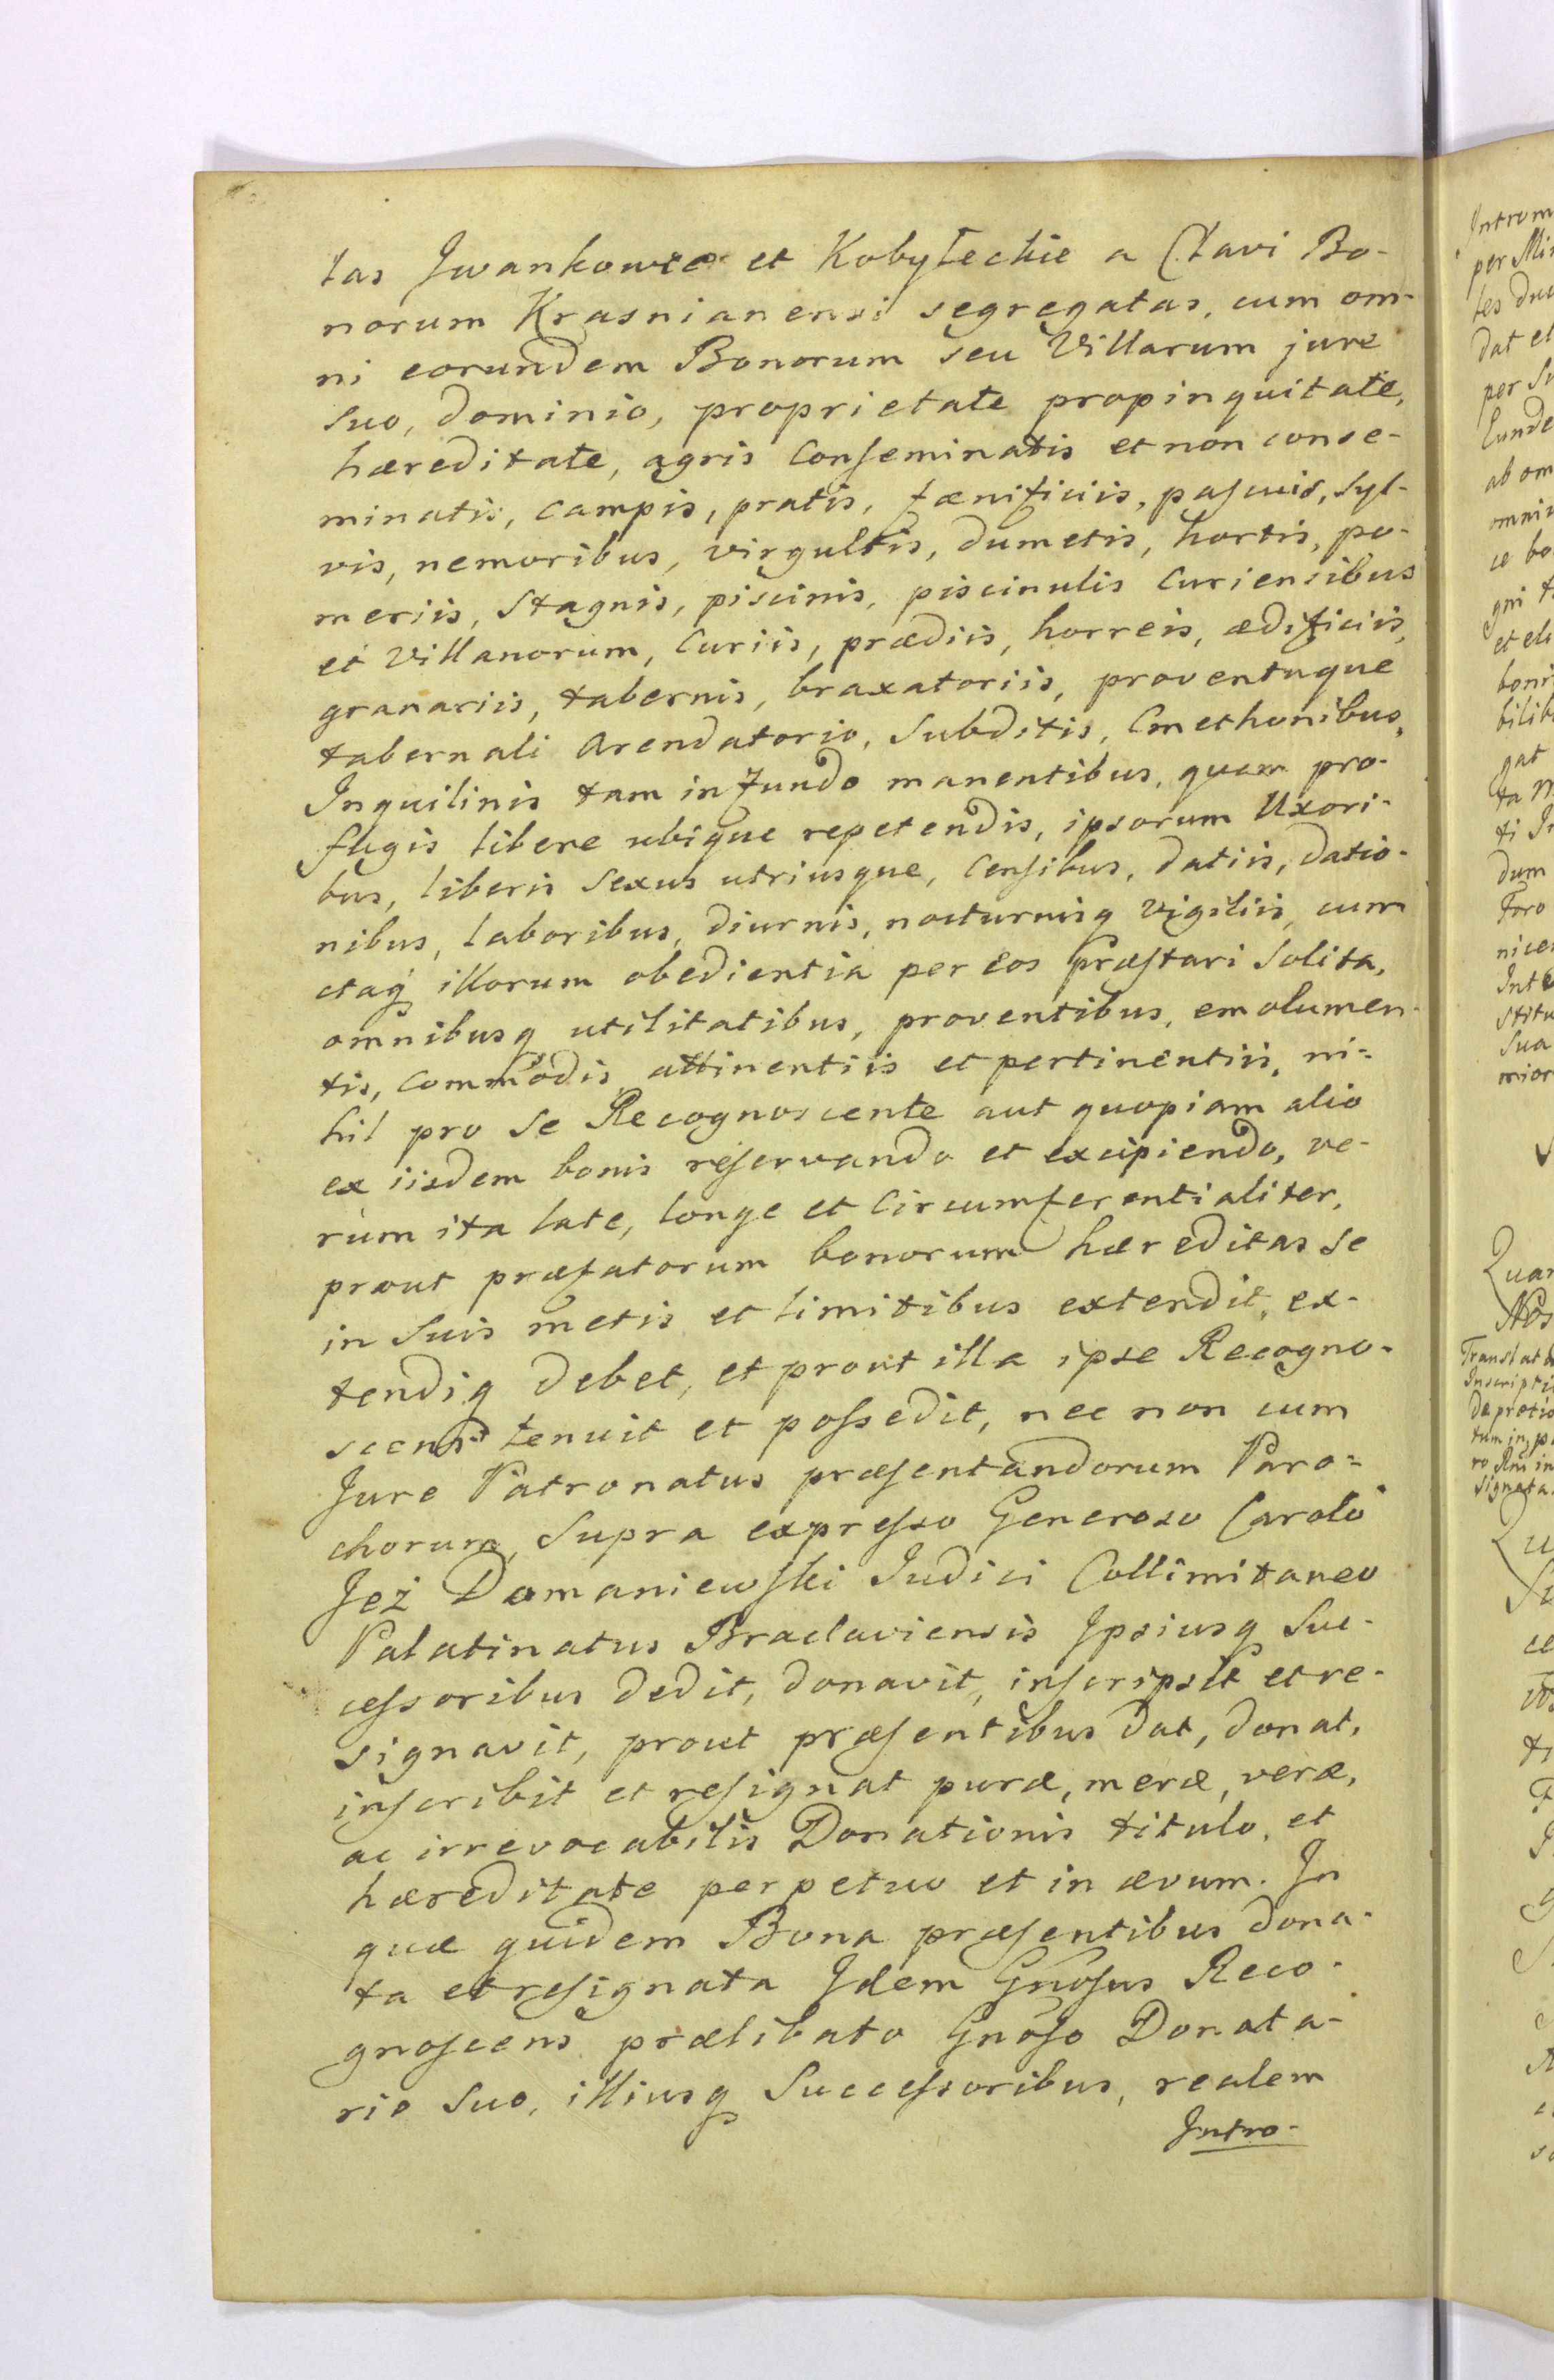 las Jwankowce et Kobyłechie a Clavi Bo-
norum Krasnianensi segregatas, cum om-
ni eorundem Bonorum seu Villarum jure
suo, dominio, proprietate propinquitate,
hæreditate, agris conseminatis et non conse-
minatis, campis, pratis, fænificiis, pascuis, syl-
vis, nemoribus, virgultis, dumetis, hortis, po-
meriis, stagnis, piscinis, piscinulis Curiensibus
et Villanorum, Curiis, prædiis, horreis, ædificiis,
granariis, tabernis, braxatoriis, proventuque
tabernali arendatorio, Subditis, Cmethonibus,
Inquilinis tam in fundo manentibus, quam pro-
fugis libere ubique repetendis, ipsorum Uxori-
bus, liberis sexus utriusque, Censibus, datiis, datio-
nibus, laboribus, diurnis, nocturnisq vigiliis, cun
ctaq illorum obedientia per eos præstari solita,
omnibusq utilitatibus, proventibus, emolumen-
tis, commodis, attinentiis et pertinentiis, ni-
hil pro se Recognoscente aut quopiam alio
ex iisdem bonis reservando et excipiendo, ve-
rum ita late, longe et circumferentialiter,
prout præfatorum bonorum hæreditas se
in suis metis et limitibus extendit, ex-
tendiq debet, et prout illa ipse Recogno-
scens tenuit et possedit, nec non cum
Jure Patronatus præsentandorum Paro-
chorum, supra expresso Generoso Carolo
Jeż Domaniewski Judici Collimitaneo
Palatinatus Braclaviensis Ipsiusq Suc-
cessoribus dedit, donavit, inscripsit et re-
signavit, prout præsentibus dat, donat,
inscribit et resignat puræ, meræ, veræ,
ac irrevocabilis Donationis titulo, et
hæreditate perpetuo et in ævum. In
quæ quidem Bona præsentibus dona-
ta et resignata Idem Gnosus Reco-
gnoscens prælibato Gnoso Donata-
rio suo, illiusq Successoribus, realem
Intro-